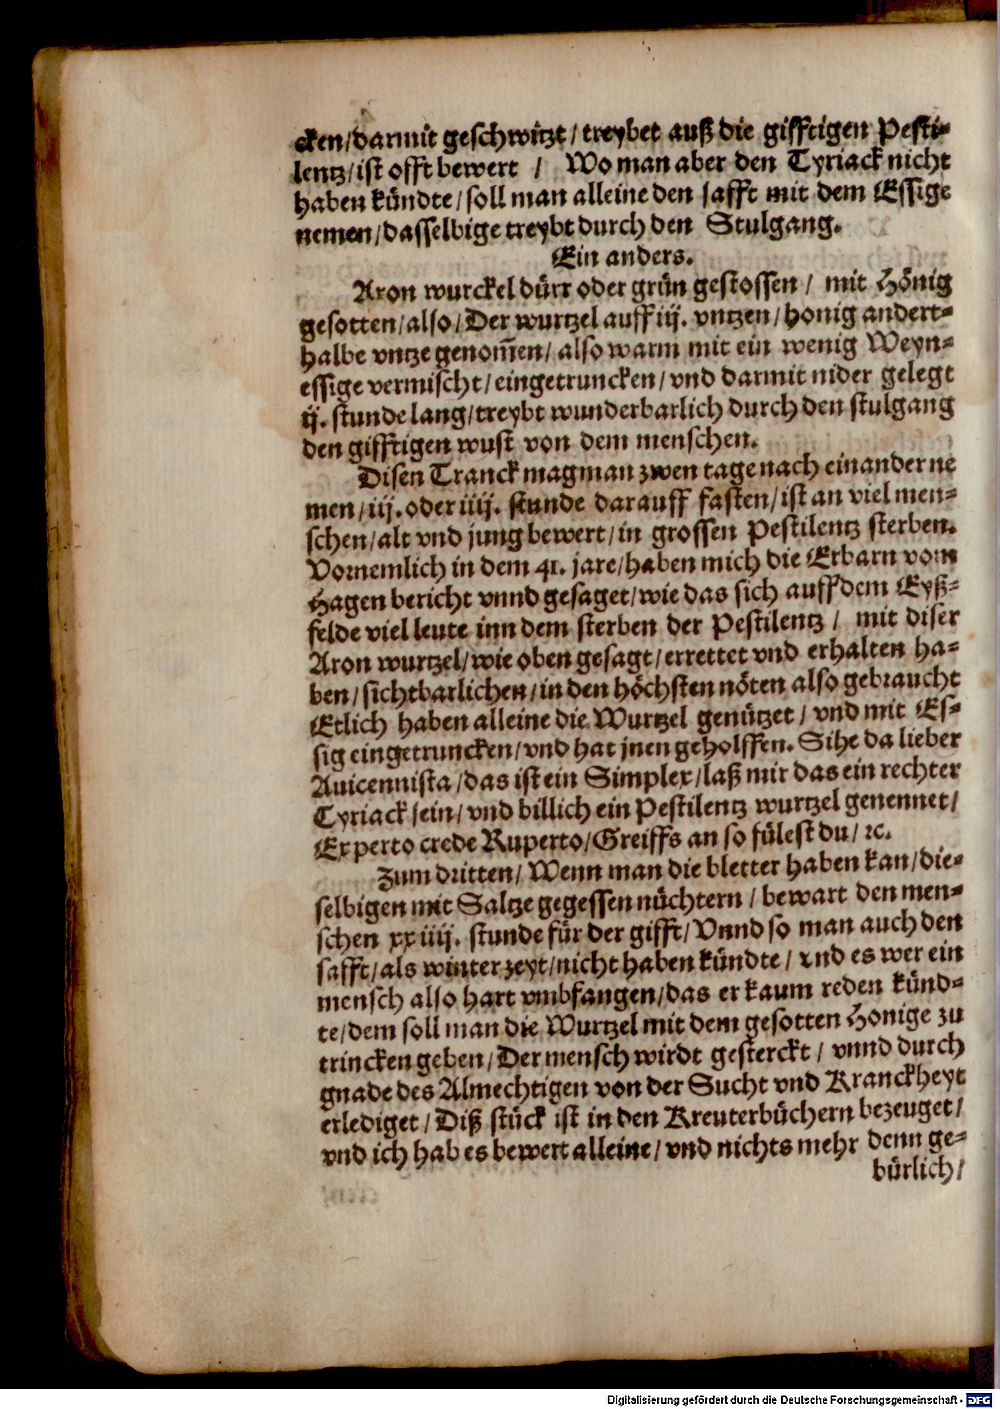 cken/darmit geschwitzt/treybet auß die gifftigen Pesti-
lentz/ist offt bewert / Wo man aber den Tyriack nicht
haben kündte/soll man alleine den safft mit dem Essige
nemen/dasselbige treybt durch den Stulgang.
Ein anders.
Aron wurckel dürr oder grün gestossen/ mit Hönig
gesotten/also/Der wurtzel auff iij. vntzen/honig andert-
halbe vntze genom̅en/also warm mit ein wenig Weyn-
essige vermischt/eingetruncken/vnd darmit nider gelegt
ij. stunde lang/treybt wunderbarlich durch den stulgang
den gifftigen wust von dem menschen.
Disen Tranck mag man zwen tage nach einander ne
men/iij. oder iiij. stunde darauff fasten/ist an viel men-
schen/alt vnd jung bewert/in grossen Pestilentz sterben.
Vornemlich in dem 41. jare/haben mich die Erbarn vom
Hagen bericht vnnd gesaget/wie das sich auff dem Eyß-
felde viel leute inn dem sterben der Pestilentz/ mit diser
Aron wurtzel/wie oben gesagt/errettet vnd erhalten ha-
ben/sichtbarlichen/in den höchsten nöten also gebraucht
Etlich haben alleine die Wurtzel genützet/ vnd mit Es-
sig eingetruncken/vnd hat jnen geholffen. Sihe da lieber
Auicennista/das ist ein Simplex/laß mir das ein rechter
Tyriack sein/vnd billich ein Pestilentz wurtzel genennet/
Experto crede Ruperto/Greiffs an so fülest du/ ꝛc.
Zum dritten/ Wenn man die bletter haben kan/die-
selbigen mit Saltze gegessen nüchtern/ bewart den men-
schen xxiiij. stunde für der gifft/Vnnd so man auch den
safft/als winter zeyt/nicht haben kündte/ vnd es wer ein
mensch also hart vmbfangen/das er kaum reden künd-
te/dem soll man die Wurtzel mit dem gesotten Honige zu
trincken geben/Der mensch wirdt gesterckt/ vnnd durch
gnade des Almechtigen von der Sucht vnd Kranckheyt
erlediget/Diß stück ist in den Kreuterbüchern bezeuget/
vnd ich hab es bewert alleine/vnd nichts mehr denn ge-
bürlich/
Digitalisierung gefördert durch die Deutsche Forschungsgemeinschaft - DFG